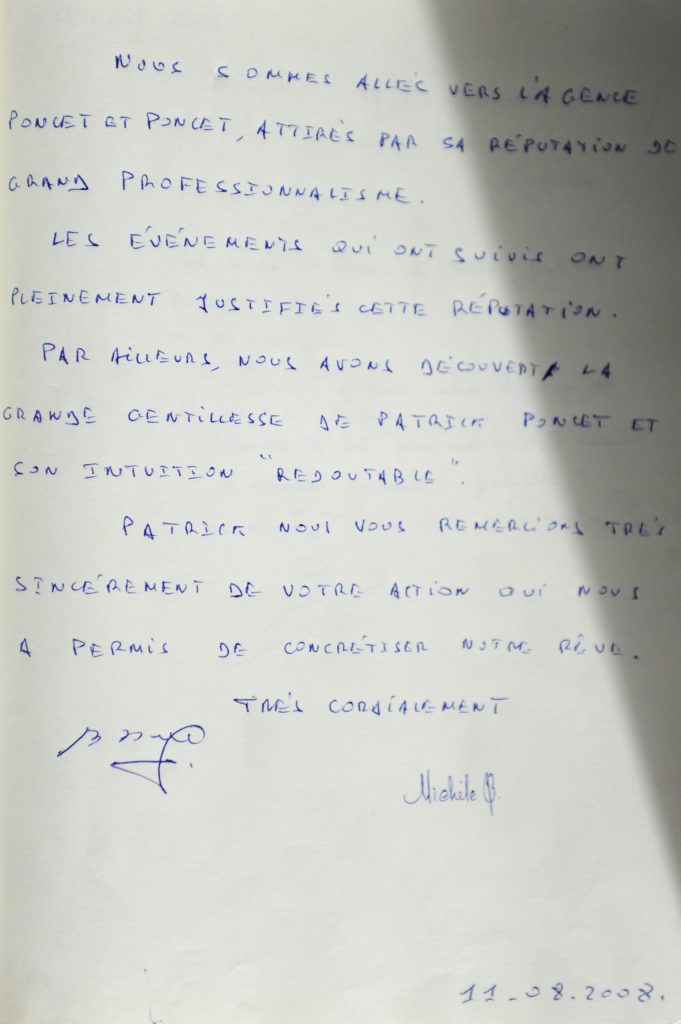 NOUS SOMMES ALLÉS VERS L'AGENCE
PONCET ET PONCET, ATTIRÉS PAR SA RÉPUTATION DE
GRAND PROFESSIONNALISME.
LES ÉVÉNEMENTS QUI ONT SUIVIS ONT
PLEINEMENT JUSTIFIÉS CETTE RÉPUTATION.
PAR AILLEURS, NOUS AVONS DÉCOUVERT LA
GRANDE GENTILLESSE DE PATRICK PONCET ET
SON INTUITION "REDOUTABLE".
PATRICK NOUS VOUS REMERCIONS TRÉS
SINCÉREMENT DE VOTRE ACTION QUI NOUS
A PERMIS DE CONCRÉTISER NOTRE RÊVE.
TRÉS CORDIALEMENT
Michèle B.
11-08.2008.